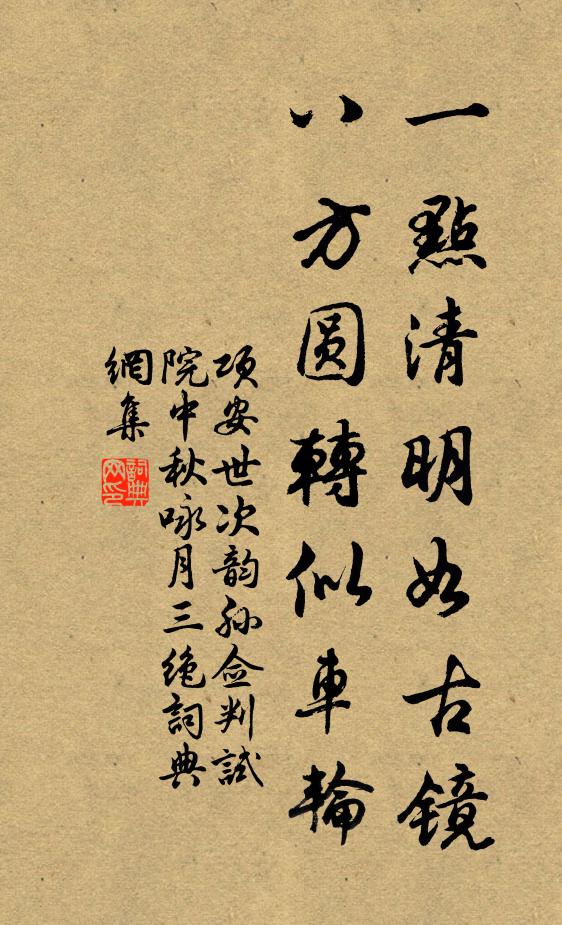 一點清明如古鏡
八方圓轉似車輪
項安世次韵孫僉判試
院中秋咏月三绝詞典
網集
詞典網印